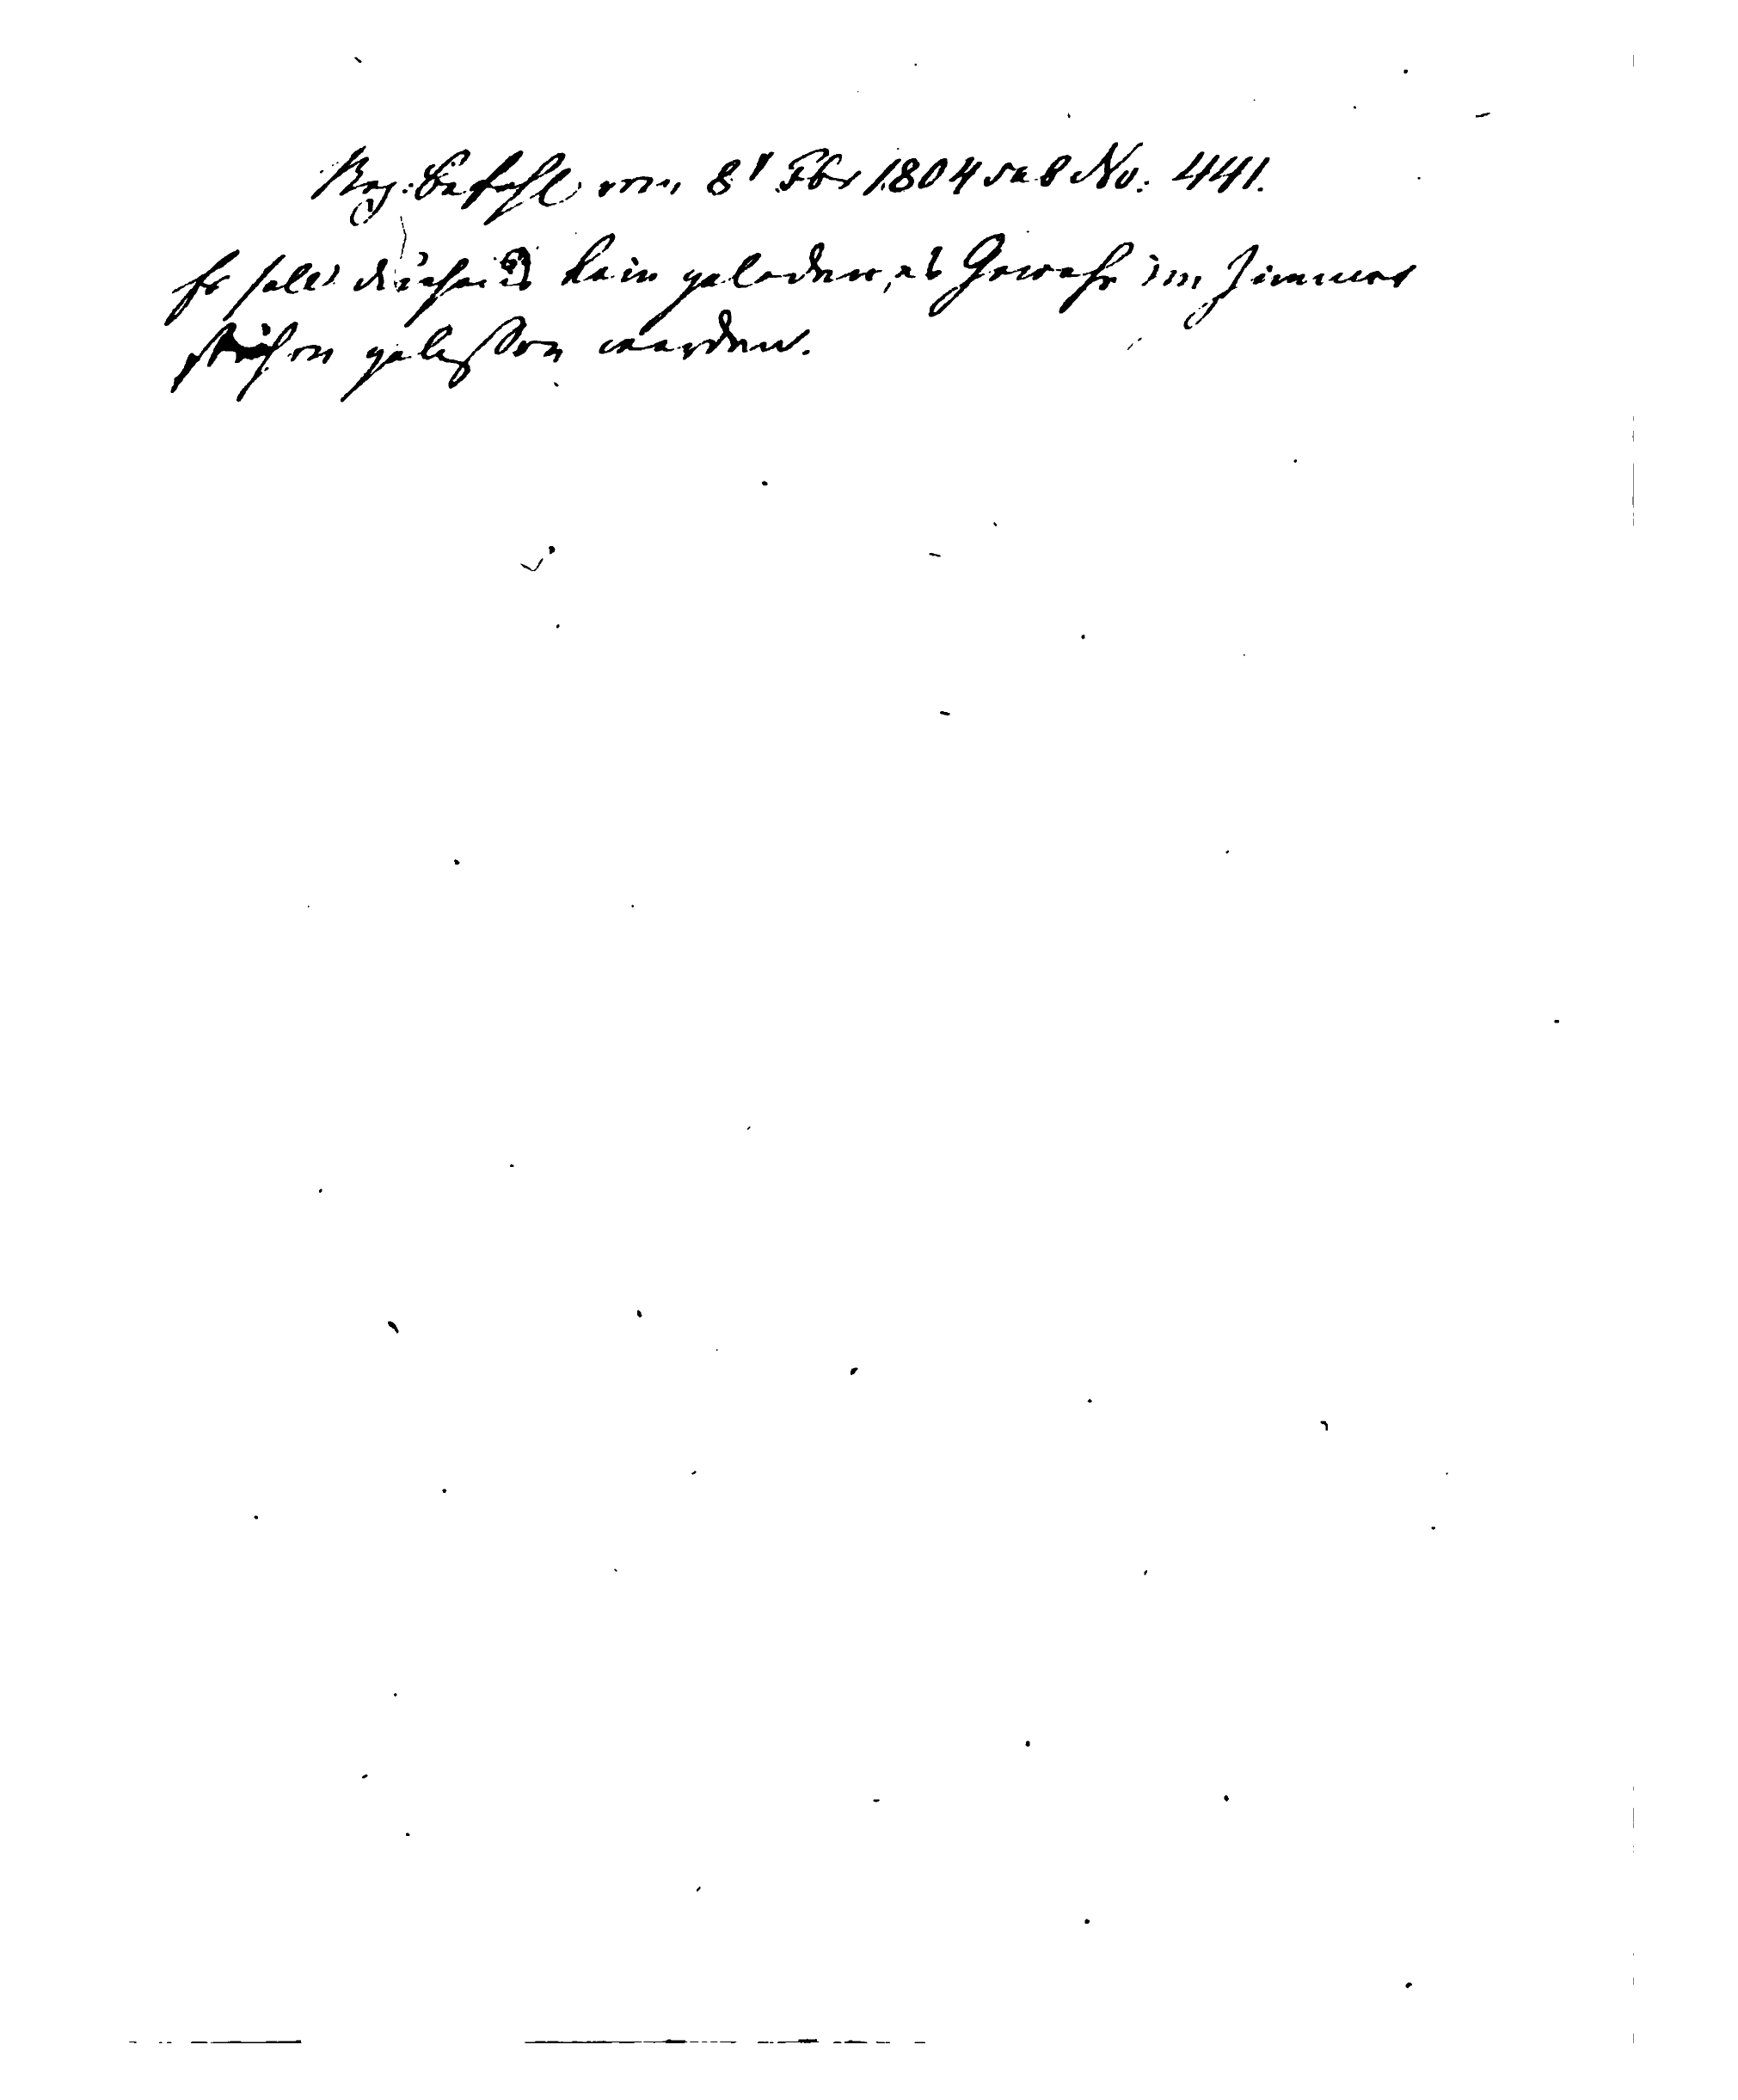 Reg: Befehl vom 8t Xbr 1804 sub No: 441.
Es solle kein geladen,es Gewehr im Zimmer
stehen gelaßen werden.